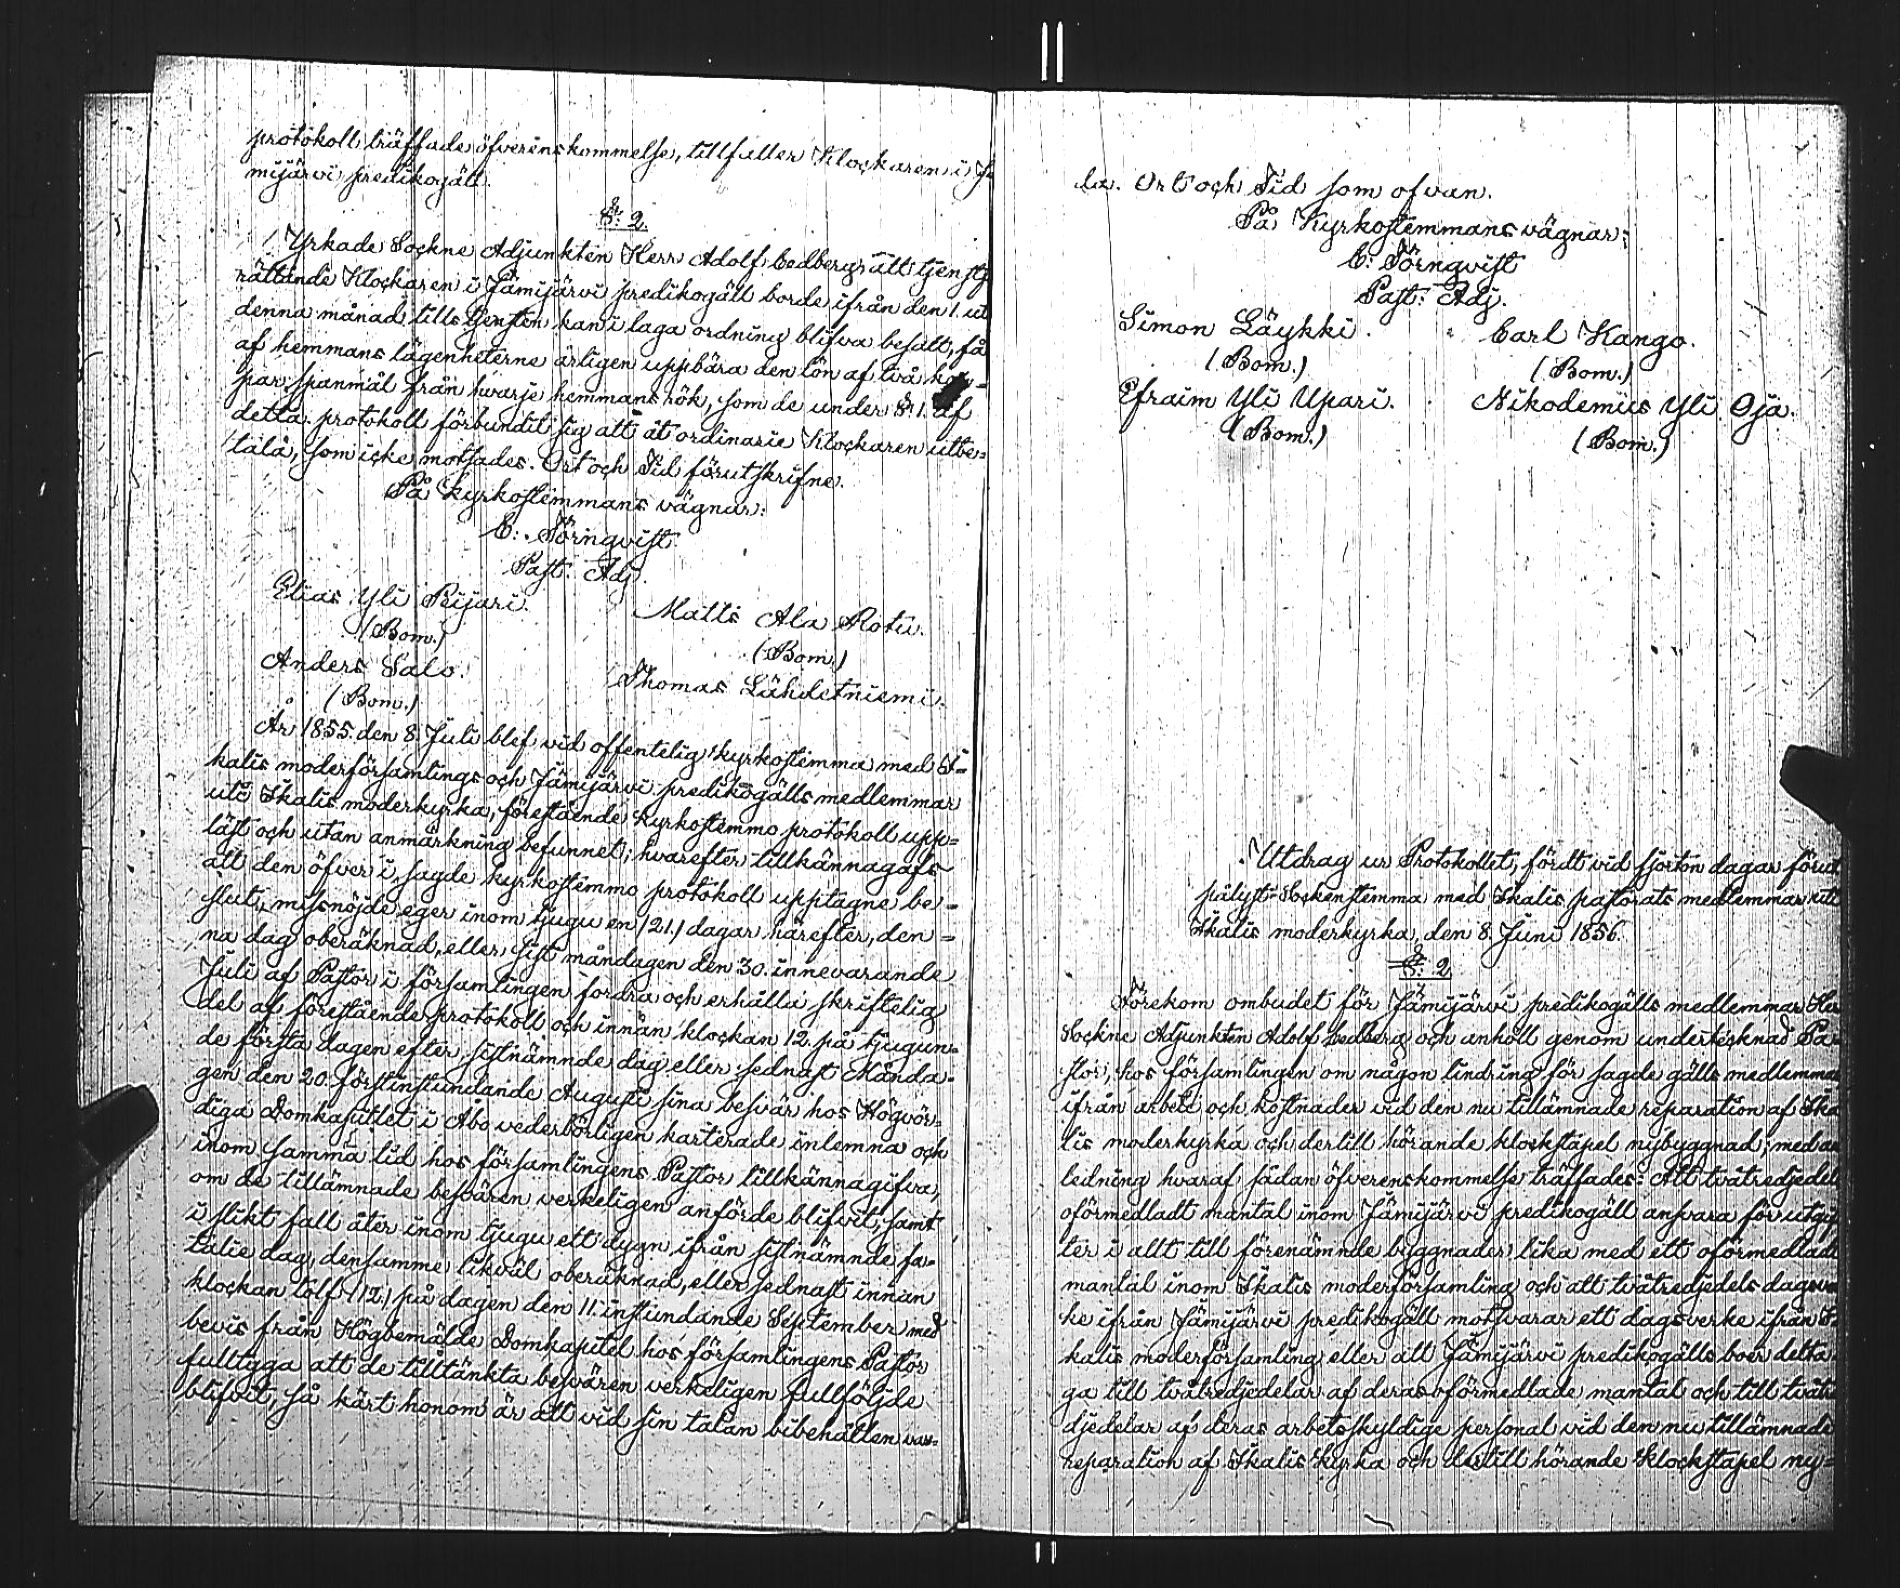 protokoll träffade öfverenskommelse, tillfaller Klockaren i Jä
mijärvi predikogäll.
§: 2.
Yrkade Sockne Adjunkten Herr Adolf Cedberg, att tjenstf
rättande Klockaren i Jämijärvi predikogäll borde ifrån den 1. uti
denna månad, tills tjensten kan i laga ordning blifva besatt, få
af hemmans lägenheterne årligen uppbära den lön af två kap-
par spanmål från hvarje hemmans rök, som de under § 1. af
detta protokoll förbundit sig att åt ordinarie Klockaren utbe-
tala, som icke motsades. Ort och Tid förutskrifne.
På Kyrkostemmans vägnar:
C: Törnqvist
Past: Adj.
Elias Yli Rijari.
(Bom.)
Matts Ala Rotu.
(Bom.)
Anders Salo.
(Bom.)
Thomas Lähdetniemi.
År 1855. den 8. Juli blef vid offentelig kyrkostemma med I-
kalis moderförsamlings och Jämijärvi predikogälls medlemmar
uti Ikalis moderkyrka, förestående kyrkostemmo protokoll upp-
läst och utan anmärkning befunnet; hvarefter tillkännagafs
att den öfver i sagde kyrkostemmo protokoll upptagne be-
slut, missnöjde eger inom tjugu en (21.) dagar härefter, den-
na dag oberäknad, eller sist måndagen den 30. innevarande
Juli af Pastor i församlingen fordra och erhålla skriftelig
del af förestående protokoll och innan klockan 12. på tjugun-
de första dagen efter sistnämnde dag eller sednast Månda-
gen den 20. förstinstundande Augusti sina besvär hos Högvör-
diga Domkapitlet i Åbo vederbörligen karterade inlemna och
inom samma tid hos församlingens Pastor tillkännagifva,
om de tillämnade besvären verkeligen anförde blifvit, samt
i slikt fall åter inom tjugu ett dygn ifrån sistnämnde fa-
talie dag, densamme likväl oberäknad, eller sednast innan
klockan tolf (12.) på dagen den 11. instundande September med
bevis från Högbemälde Domkapitel hos församlingens Pastor
fulltyga att de tilltänkta besvären verkeligen fullföljde
blifvit, så kärt honom är att vid sin talan bibehållen var-
la. Ort och Tid som ofvan.
På Kyrkostemmans vägnar:
C: Törnqvist
Past: Adj.
Simon Läykki.
Carl Kango.
(Bom.)
(Bom.)
Efraim Yli Upari.
Nikodemus Yli Oja.
(Bom.)
(Bom.)
Utdrag ur Protokollet, fördt vid fjorton dagar förut
pålyst Sockenstemma med Ikalis pastorats medlemmar uti
Ikalis moderkyrka, den 8. Juni 1856.
§: 2
Förekom ombudet för Jämijärvi predikogälls medlemmar Her
Sockne Adjunkten Adolf Cedberg och anhöll genom undertecknad Pa
stor, hos församlingen om någon lindring för sagde gälls medlemmar
ifrån arbete och kostnader vid den nu tillämnade reparation af Ika
lis moderkyrka och dertill hörande klockstapel nybyggnad; med an
ledning hvaraf sådan öfverenskommelse träffades: Att tvåtredjedel
oförmedladt mantal inom Jämijärvi predikogäll ansvara för utgif
ter i allt till förenämnde byggnader lika med ett oförmedladt
mantal inom Ikalis moderförsamling och att tvåtredjedels dagsver
ke ifrån Jämijärvi predikogäll motsvarar ett dagsverke ifrån I-
kalis moderförsamling eller att Jämijärvi predikogälls boer delta
ga till tvåtredjedelar af deras oförmedlade mantal och till tvåtre
djedelar af deras arbetsskyldige personal vid den nu tillämnade
reparation af Ikalis Kyrka och dertill hörande Klockstapel ny-